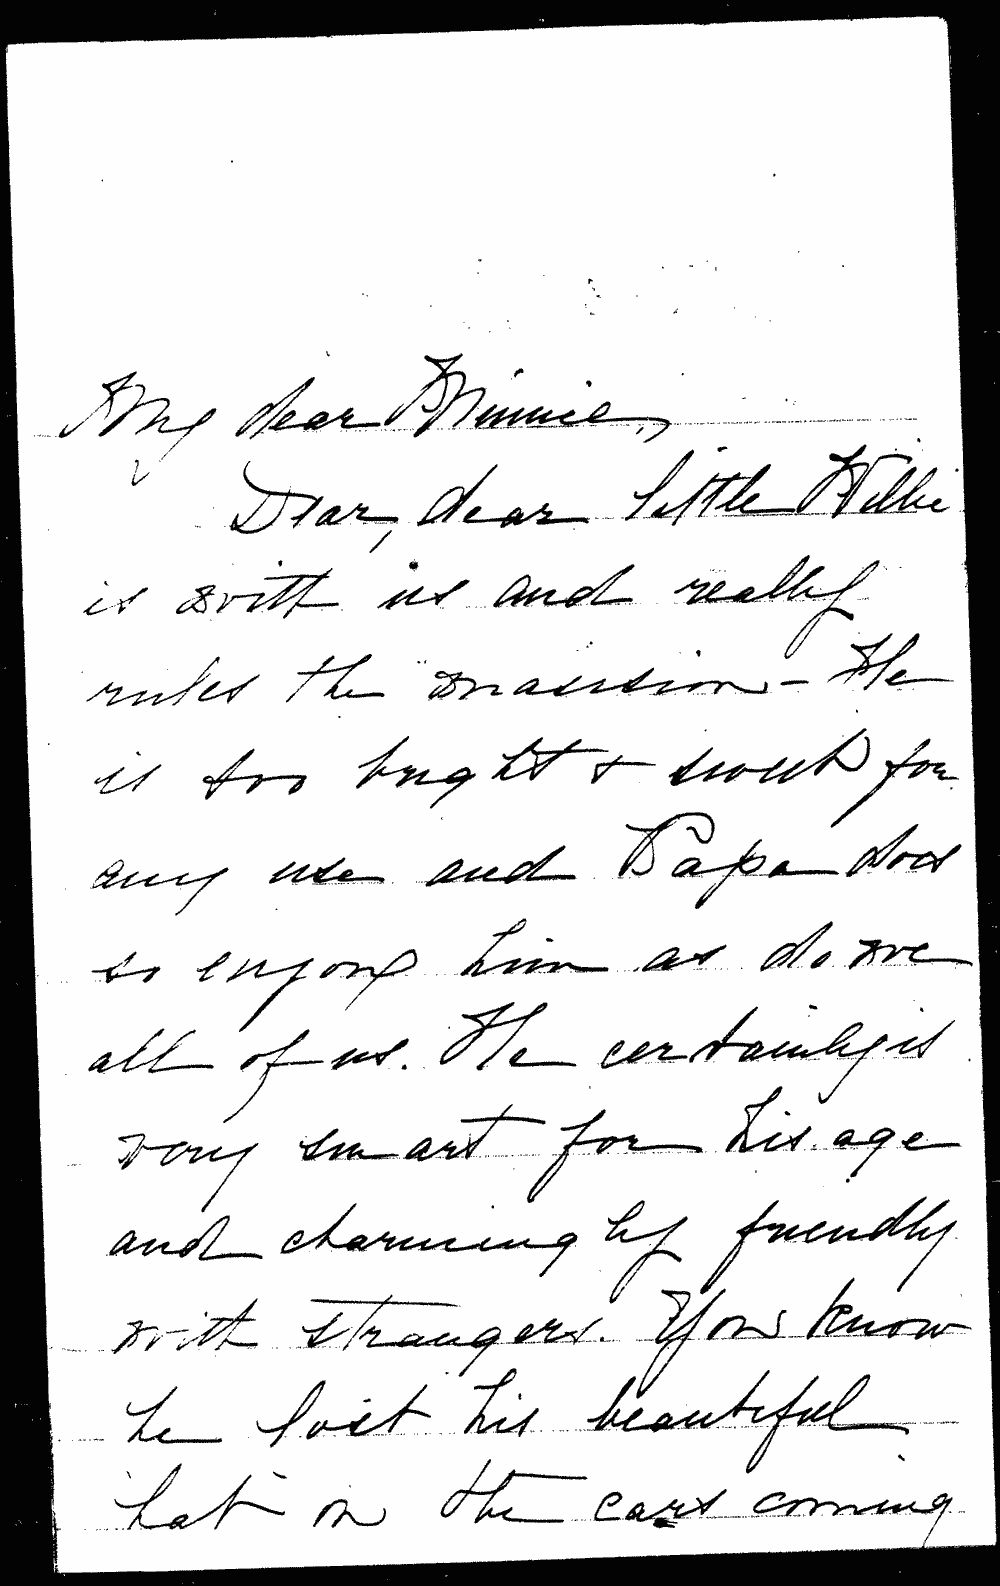 My dear Minnie,
Dear, dear little Willie
is with us and really
rules the mansion - He
is too bright & sweet for
any use and Papa does
so enjoy him as do we
all of us. He certainly is
very smart for his age
and charmingly friendly
with strangers. You know
he lost his beautiful
hat on the cars coming